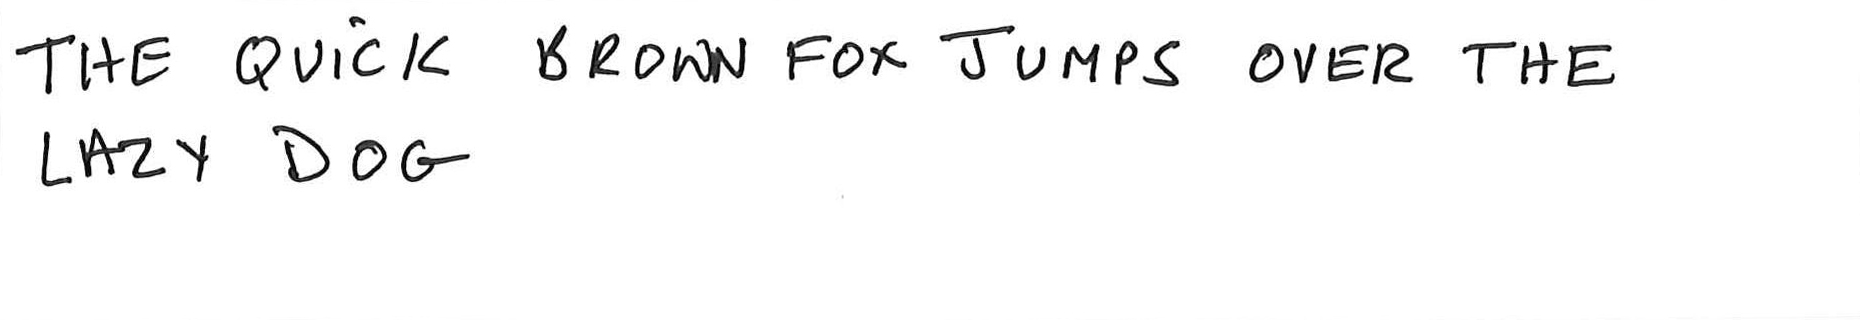 THE QUiCK BROWN FOX JUMPS OVER THE
LAZY DOG